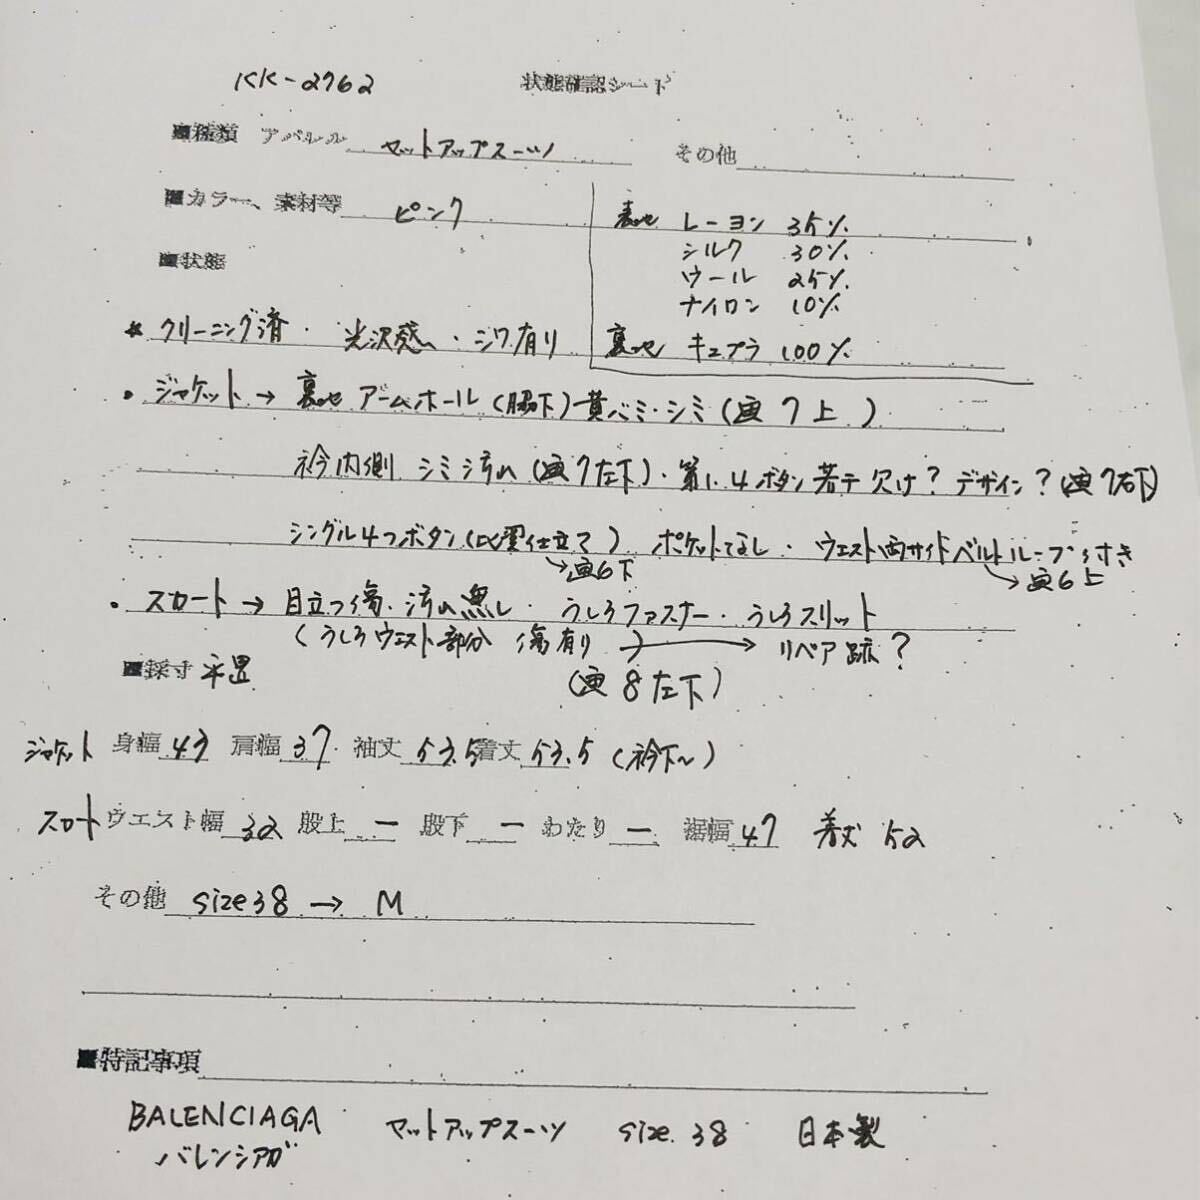 KK-2762 状態確認シート
■種類 アパレル セットアップスーツ その他
■カラー、素材等 ピンク 表地 レーヨン 35%
シルク 30%
■状態
ウール 25%
ナイロン 10%
* クリーニング済・光沢感・シワ有り 裏地 キュプラ 100%
• ジャケット → 裏地 アームホール(脇下)黄バミ・シミ(画7上)
衿内側 シミ汚れ(画7左下)・第1.4ボタン若干欠け?デザイン?(画7右下)
シングル4つボタン(比翼仕立て) ポケットなし・ウエスト両サイドベルトループ付き
→画6下 →画6上
• スカート → 目立つ傷・汚れ無し・うしろファスナー・うしろスリット
(うしろウエスト部分 傷有り) → リペア跡?
■採寸 平置 (画8左下)
ジャケット 身幅 43 肩幅 37 袖丈 53.5 着丈 53.5 (衿下~)
スカート ウエスト幅 32 股上 ー 股下 ー わたり ー 裾幅 47 着丈 52
その他 size38 → M
■特記事項
BALENCIAGA セットアップスーツ size.38 日本製
バレンシアガ